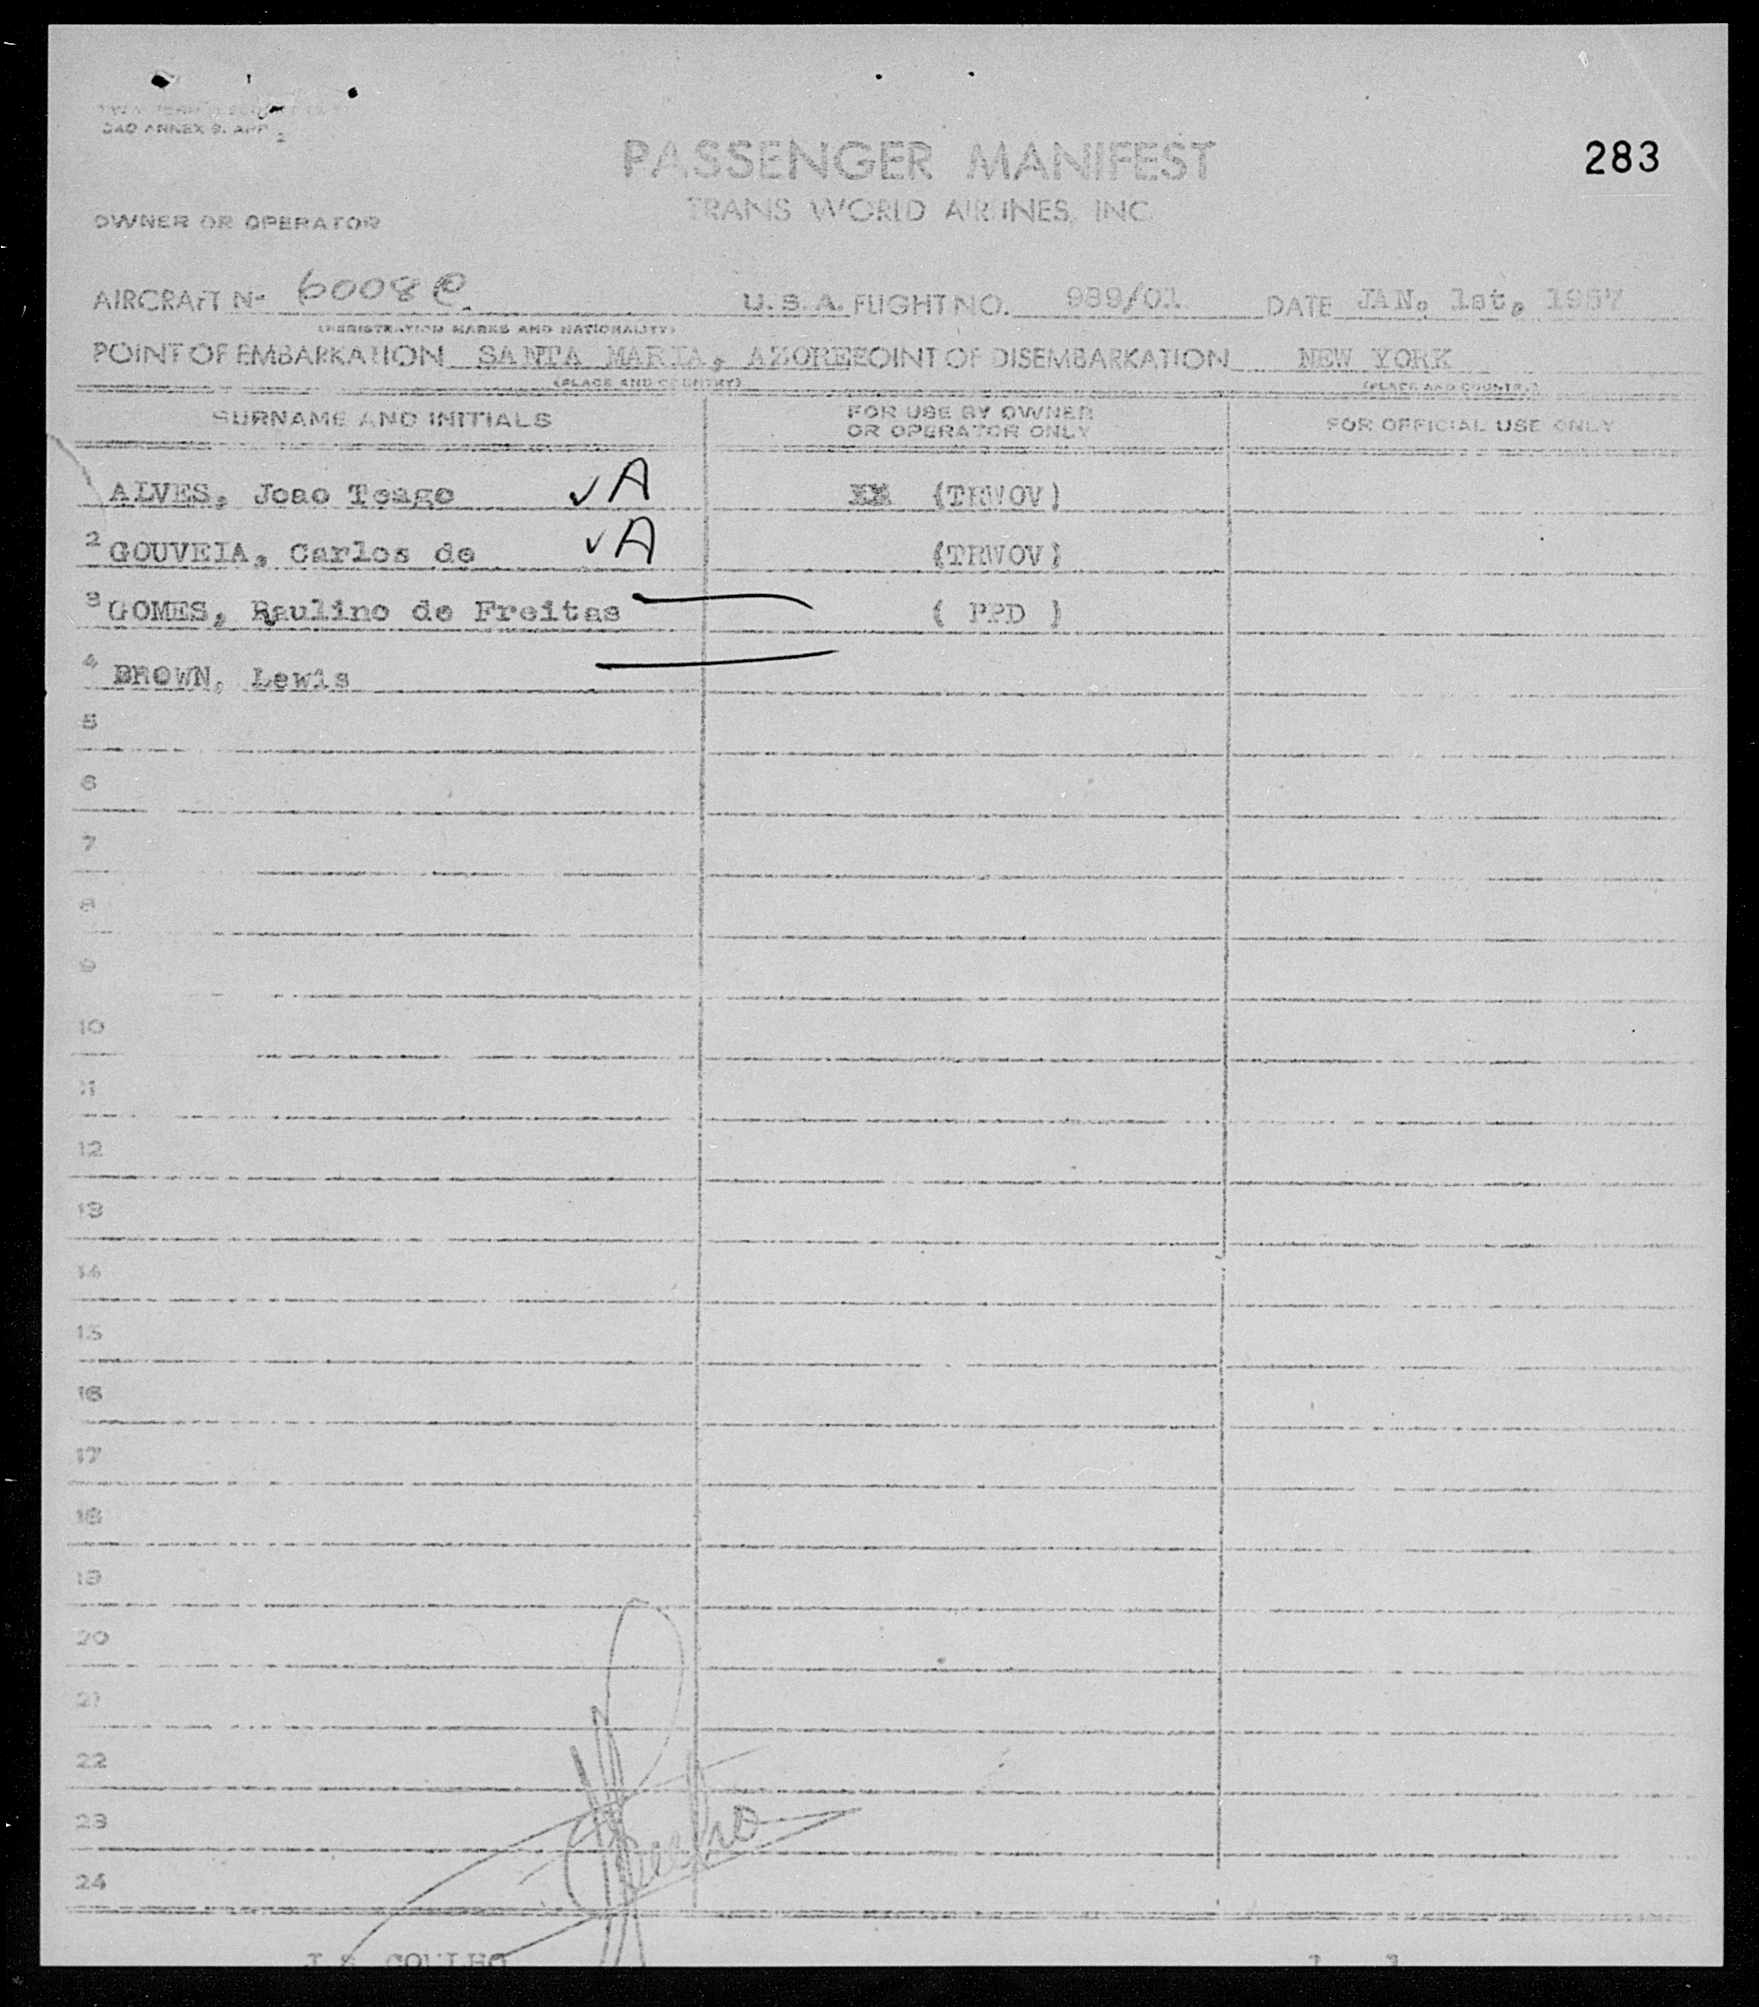 CAO ANNEX 9. APP 2
PASSENGER MANIFEST
283
TRANS WORLD AIRLINES, INC
OWNER OR OPERATOR
AIRCRAFT Nº 6008C U.S.A. FLIGHT NO. 989/01 DATE JAN. 1st, 1957
(REGISTRATION MARKS AND NATIONALITY)
POINT OF EMBARKATION SANTA MARIA, AZORES POINT OF DISEMBARKATION NEW YORK
(PLACE AND COUNTRY) (PLACE AND COUNTRY)
SURNAME AND INITIALS FOR USE BY OWNER OR OPERATOR ONLY FOR OFFICIAL USE ONLY
ALVES, Joao Teago √A XX (TRWOV)
2 GOUVEIA, Carlos de √A (TRWOV)
3 GOMES, Raulino de Freitas ( PPD )
4 BROWN, Lewis
5
6
7
8
9
10
11
12
13
14
15
16
17
18
19
20
21
22
23
24
COELHO